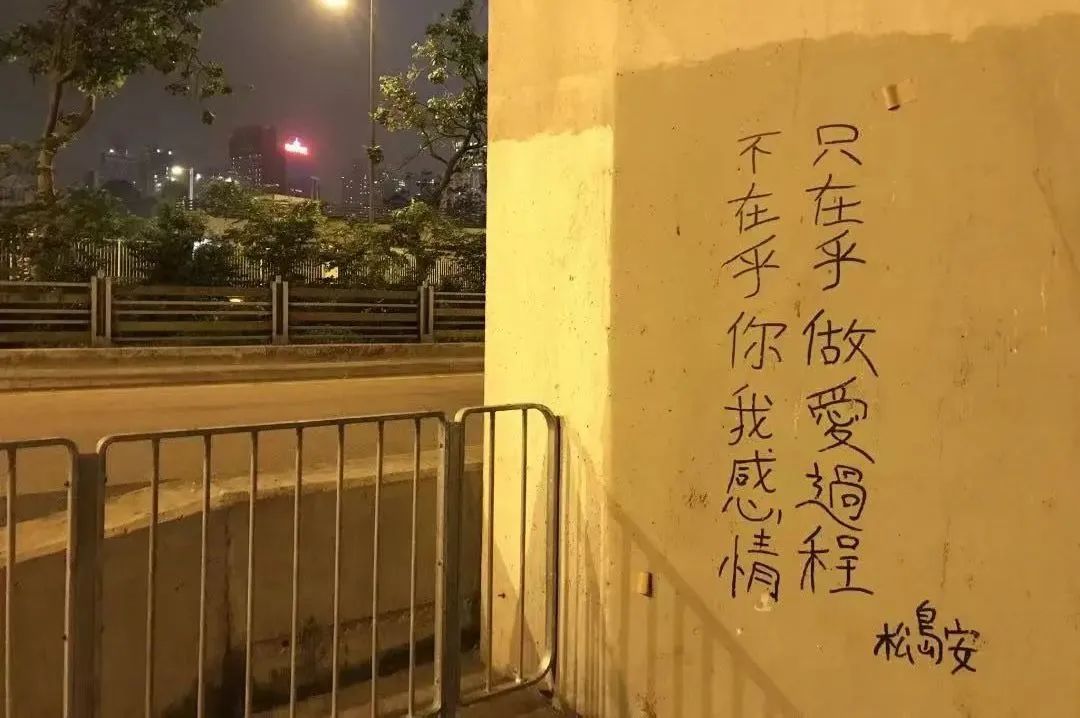 只在乎做愛過程
不在乎你我感情
松島安